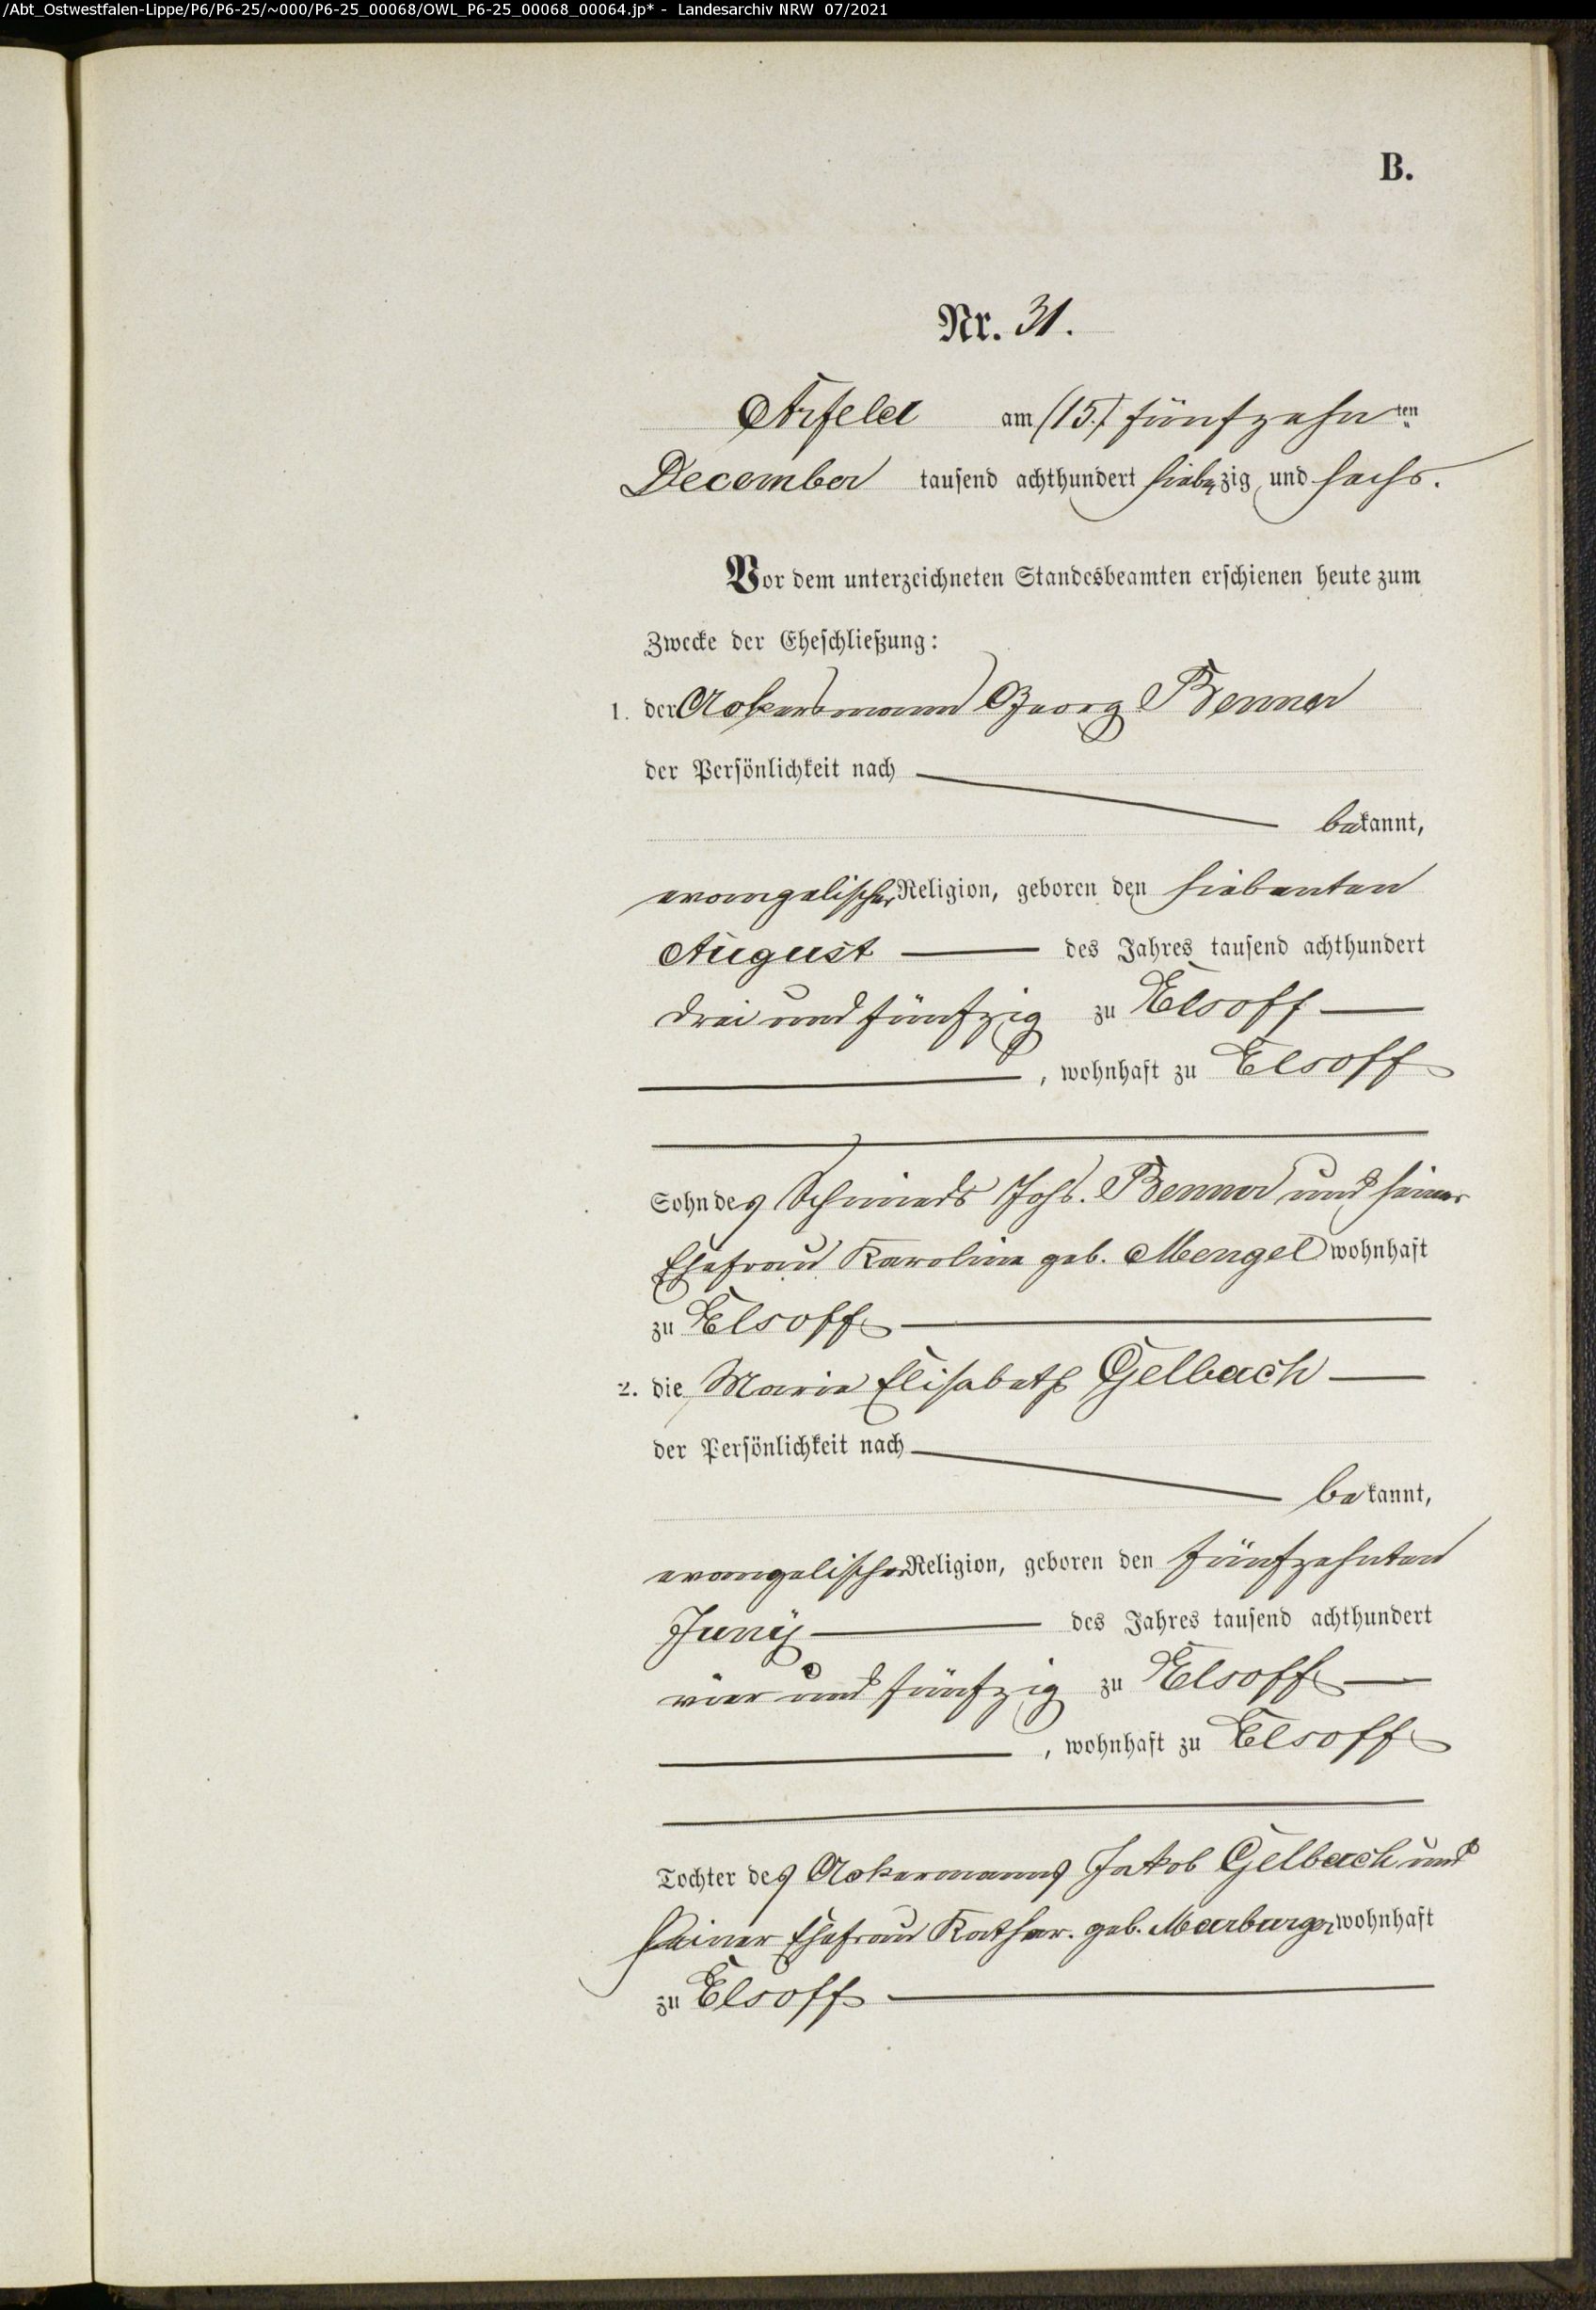 /Abt_Ostwestfalen-Lippe/P6/P6-25/~000/P6-25_00068/OWL_P6-25_00068_00064.jp* - Landesarchiv NRW 07/2021
B.
Nr. 31.
Arfeld am (15.) fünfzehnten
December tausend achthundert siebzig und sechs.
Vor dem unterzeichneten Standesbeamten erschienen heute zum
Zwecke der Eheschließung:
1. der Ackersmann Georg Benner
der Persönlichkeit nach
bekannt,
evangelischer Religion, geboren den siebenten
August des Jahres tausend achthundert
drei und fünfzig zu Elsoff
, wohnhaft zu Elsoff
Sohn des Schmieds Johs. Benner und seiner
Ehefrau Karoline geb. Mengel wohnhaft
zu Elsoff
2. die Marie Elisabeth Gelbach
der Persönlichkeit nach
bekannt,
evangelischer Religion, geboren den fünfzehnten
Juny des Jahres tausend achthundert
vier und fünfzig zu Elsoff
, wohnhaft zu Elsoff
Tochter des Ackermanns Jakob Gelbach und
seiner Ehefrau Kathar. geb. Marburger wohnhaft
zu Elsoff